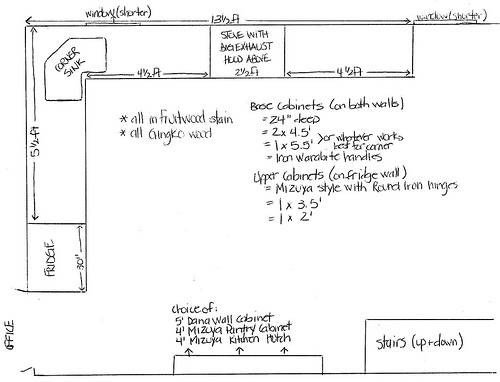 window(shorter)
13½ft
window(shorter)
STOVE WITH
BIG EXHAUST
HOOD ABOVE
2½ft
CORNER
SINK
4½ft
4½ft
5½ft
* all in fruitwood stain
* all Gingko wood
Base Cabinets (on both walls)
= 24" deep
= 2 x 4.5'
= 1 x 5.5'
> or whatever works
best for corner
= Iron Warabite handles
Upper Cabinets (on fridge wall)
= Mizuya style with Round Iron hinges
= 1 x 3.5'
= 1 x 2'
FRIDGE
30"
OFFICE
choice of:
5' Dana Wall Cabinet
4' Mizuya Pantry Cabinet
4' Mizuya Kitchen Hutch
stairs (up+down)